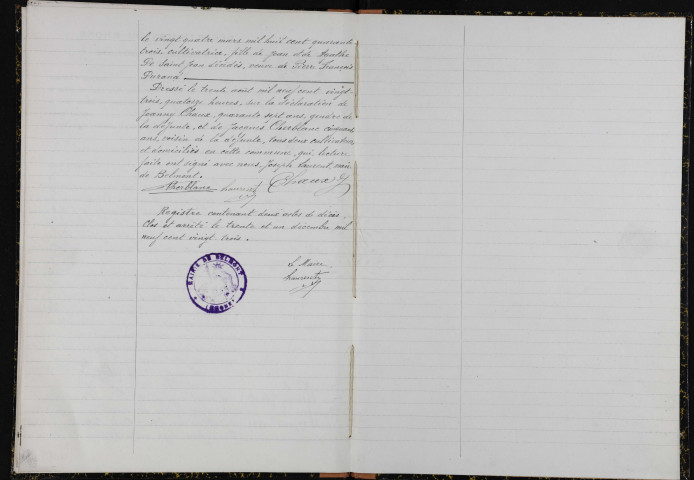 le vingt quatre mars mil huit cent quarante
trois, cultivatrice, fille de Jean et de Agathe
De Saint Jean décédés, veuve de Pierre François
Durand.
Dressé le trente août mil neuf cent vingt
trois, quatorze heures, sur la déclaration de
Joanny Chaux, quarante sept ans, gendre de
la défunte, et de Jacques Cherblanc cinquante
ans, voisin de la défunte, tous deux cultivateurs
et domiciliés en cette commune, qui, lecture
faite ont signé avec nous, Joseph Laurent maire
de Belmont.
Cherblanc Laurent Chaux J
Registre contenant deux actes de décès.
Clos et arrêté le trente et un décembre mil
neuf cent vingt trois.
Le Maire
Laurent
MAIRIE DE BELMONT
(RHONE)